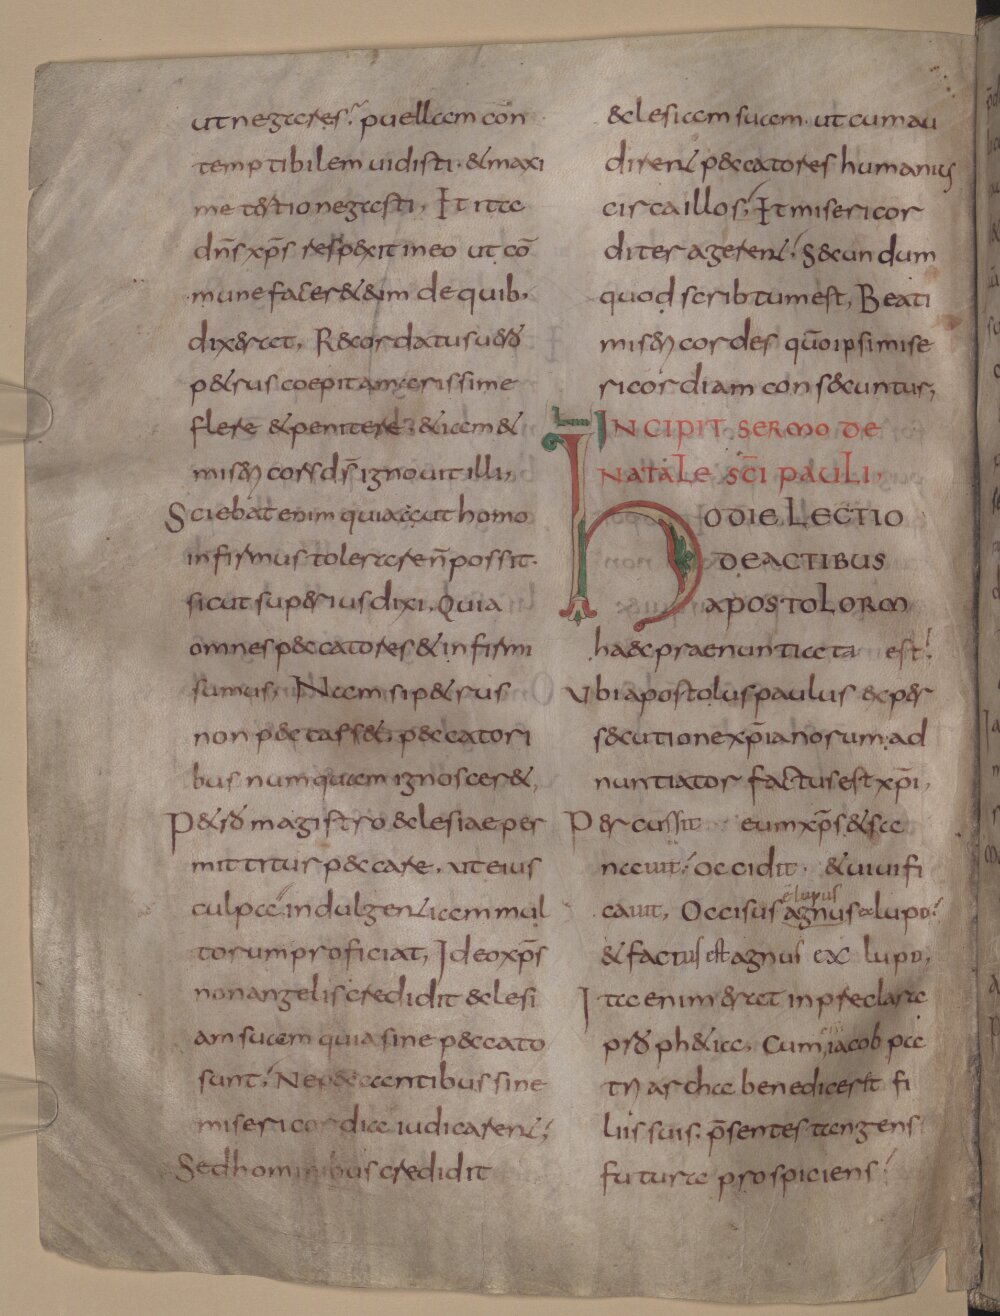 ut negares? puellam con
temptibilem uidisti. & maxi
me tertio negasti, Et ita
dn̄s xp̄s respexit in eo ut cō
mune facer& & eum de quib,
dixerat, Recordatus uero
p&rus coepit amarissime
flere & penitere; & iam &
miseri cors d̄s ignouit illi,
Sciebat enim quia aut homo
infirmus tolerare n̄ possit.
sicut superius dixi, Quia
omnes peccatores & infirmi
sumus, Nam si p&rus
non peccass&, peccatori
bus numquam ignoscer&,
P&ro magistro eclesiae per
mittitur peccare, ut eius
culpa indulgentiam mul
torum proficiat, Ideo xp̄s
non angelis credidit eclesi
am suam quia sine peccato
sunt; Ne peccantibus sine
misericordia iudicarent;
Sed hominibus credidit
eclesiam suam. ut cum au
dirent peccatores humanius
circa illos, Et misericor
diter agerent; Secundum
quod scribtum est, Beati
misericordes quō ipsi mise
ricordiam consecuntur,
INCIPIT SERMO DE
NATALE SC̄I PAULI,
HODIE LECTIO
DE ACTIBUS
APOSTOLORM
haec praenuntiata est!
Ubi apostolus paulus de per
secutione xp̄ianorum ad
nuntiator factus est xp̄i,
Percussit eum xp̄s & sa
nauit! Occidit & uiuifi
cauit, Occisus agnus a lupo!
ē lupus
& factus est agnus ex lupo,
Ita enim erat in praeclara
proph&ia, Cum iacob pa
triarcha benediceret fi
eius
liis suis. p̄sentes tangens
futura prospiciens!